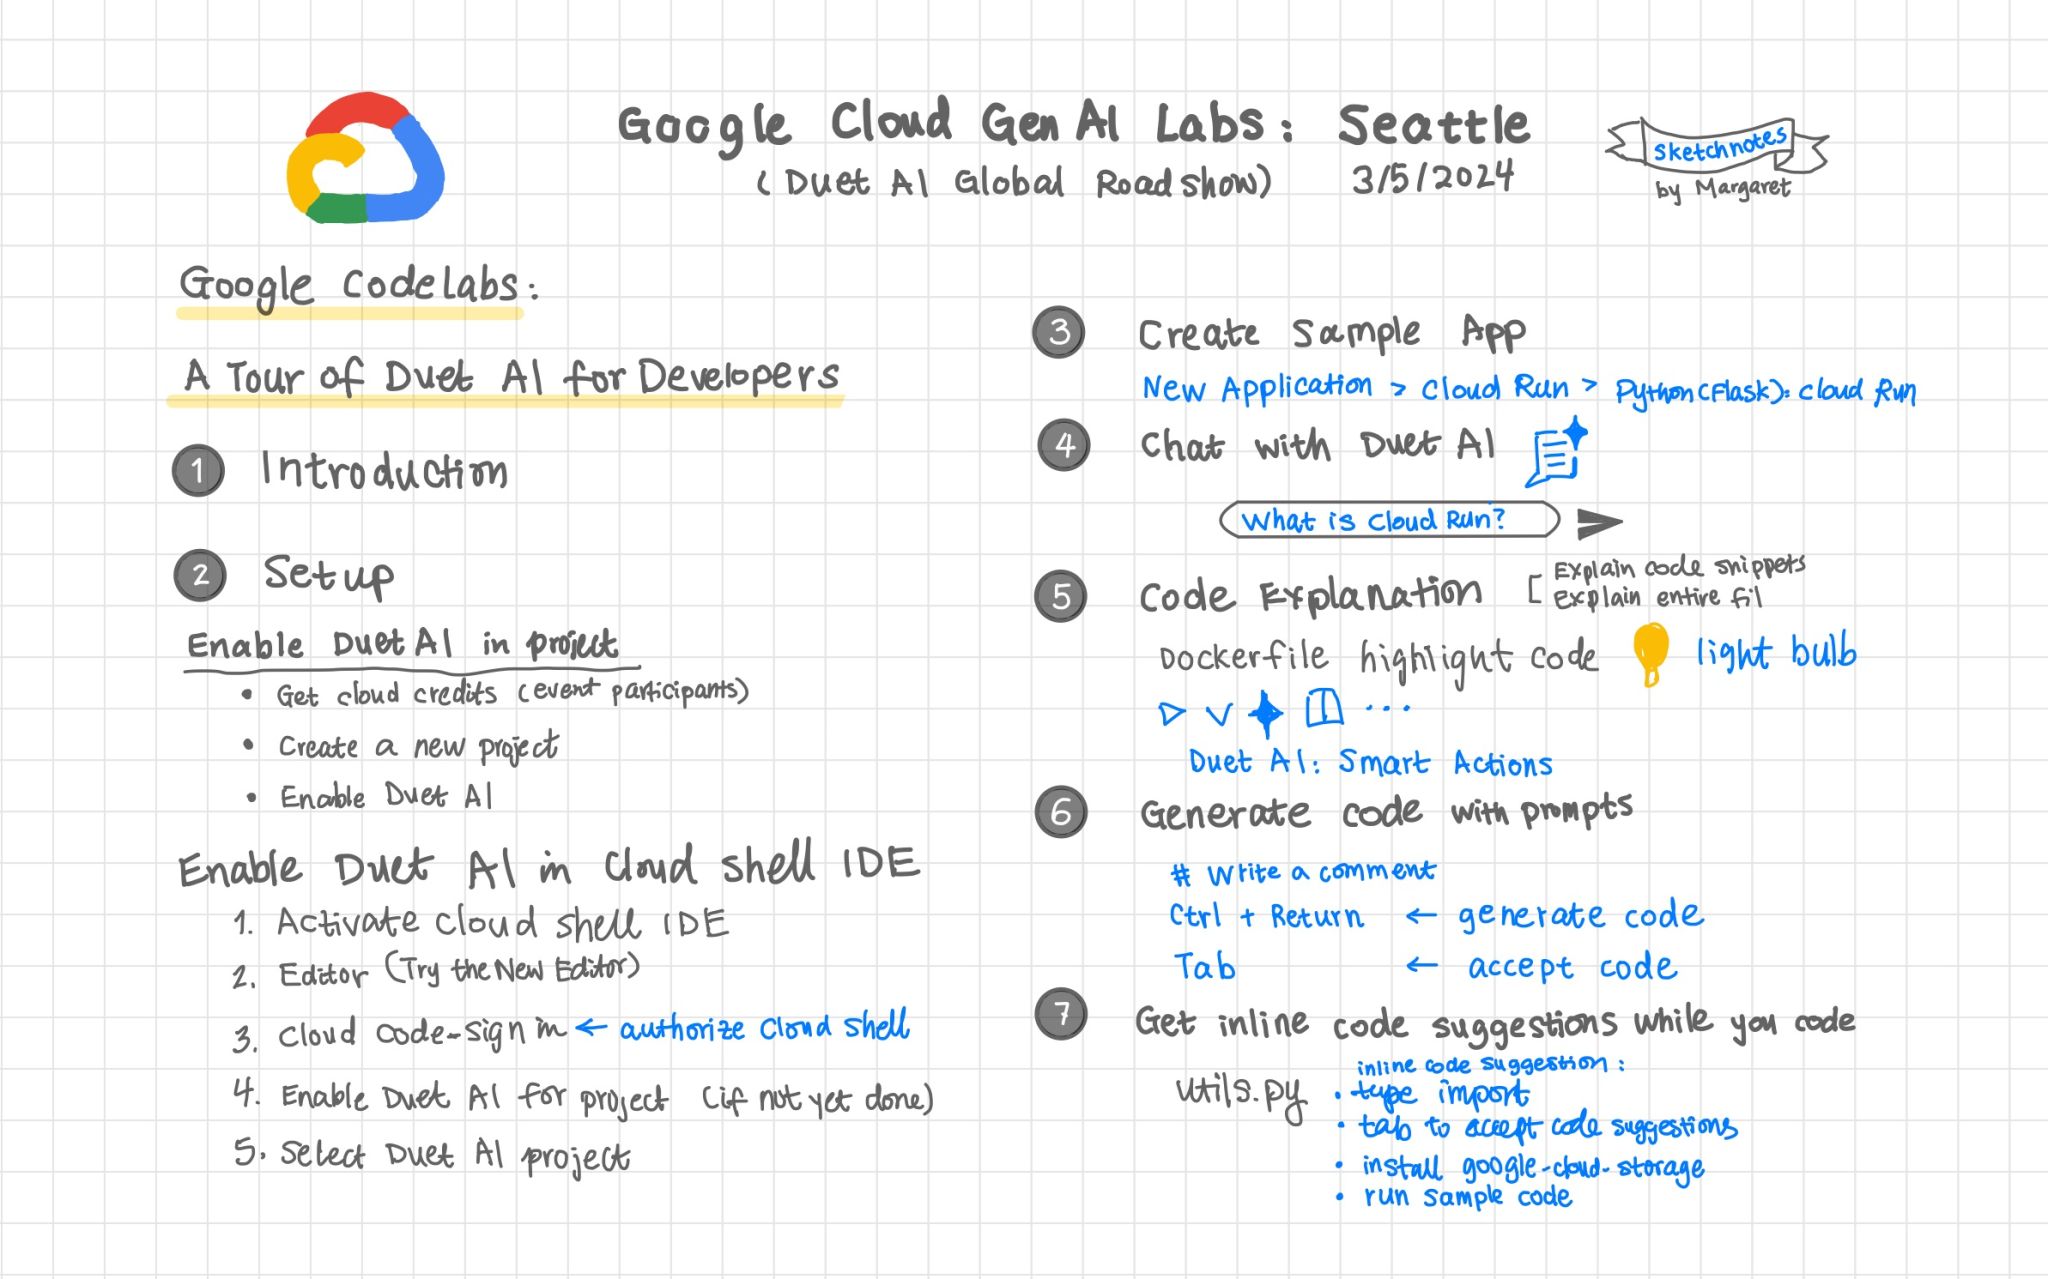 Google Cloud Gen AI Labs: Seattle
(Duet AI Global Roadshow) 3/5/2024
sketchnotes
by Margaret
Google CodeLabs:
A Tour of Duet AI for Developers
1 Introduction
2 Setup
Enable Duet AI in project
• Get cloud credits (event participants)
• Create a new project
• Enable Duet AI
Enable Duet AI in Cloud shell IDE
1. Activate Cloud shell IDE
2. Editor (Try the New Editor)
3. Cloud code-sign in ← authorize Cloud shell
4. Enable Duet AI for project (if not yet done)
5. Select Duet AI project
3 Create Sample App
New Application > Cloud Run > Python(Flask): Cloud Run
4 Chat with Duet AI
What is Cloud Run?
5 Code Explanation [ Explain code snippets
explain entire fil
Dockerfile highlight code light bulb
...
Duet AI: Smart Actions
6 Generate code with prompts
# Write a comment
Ctrl + Return ← generate code
Tab ← accept code
7 Get inline code suggestions while you code
inline code suggestion:
utils.py • type import
• tab to accept code suggestions
• install google-cloud-storage
• run sample code